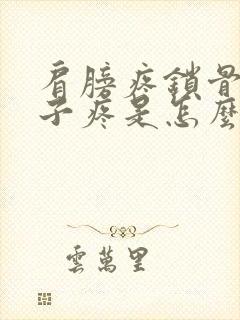 肩膀疼鎖骨
子疼是怎麼
雲萬里